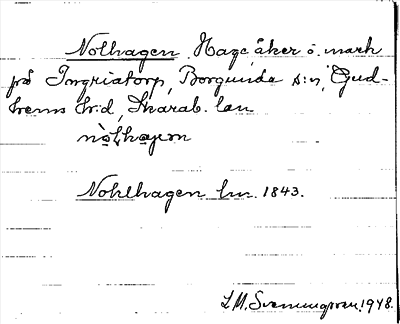 Nolhagen. Hage, åker o. mark
på Ingriatorp, Borgunda s:n, Gud-
hems h:d, Skarab. län
Nohlhagen lm. 1843.
L.M. Svenningson 1948.